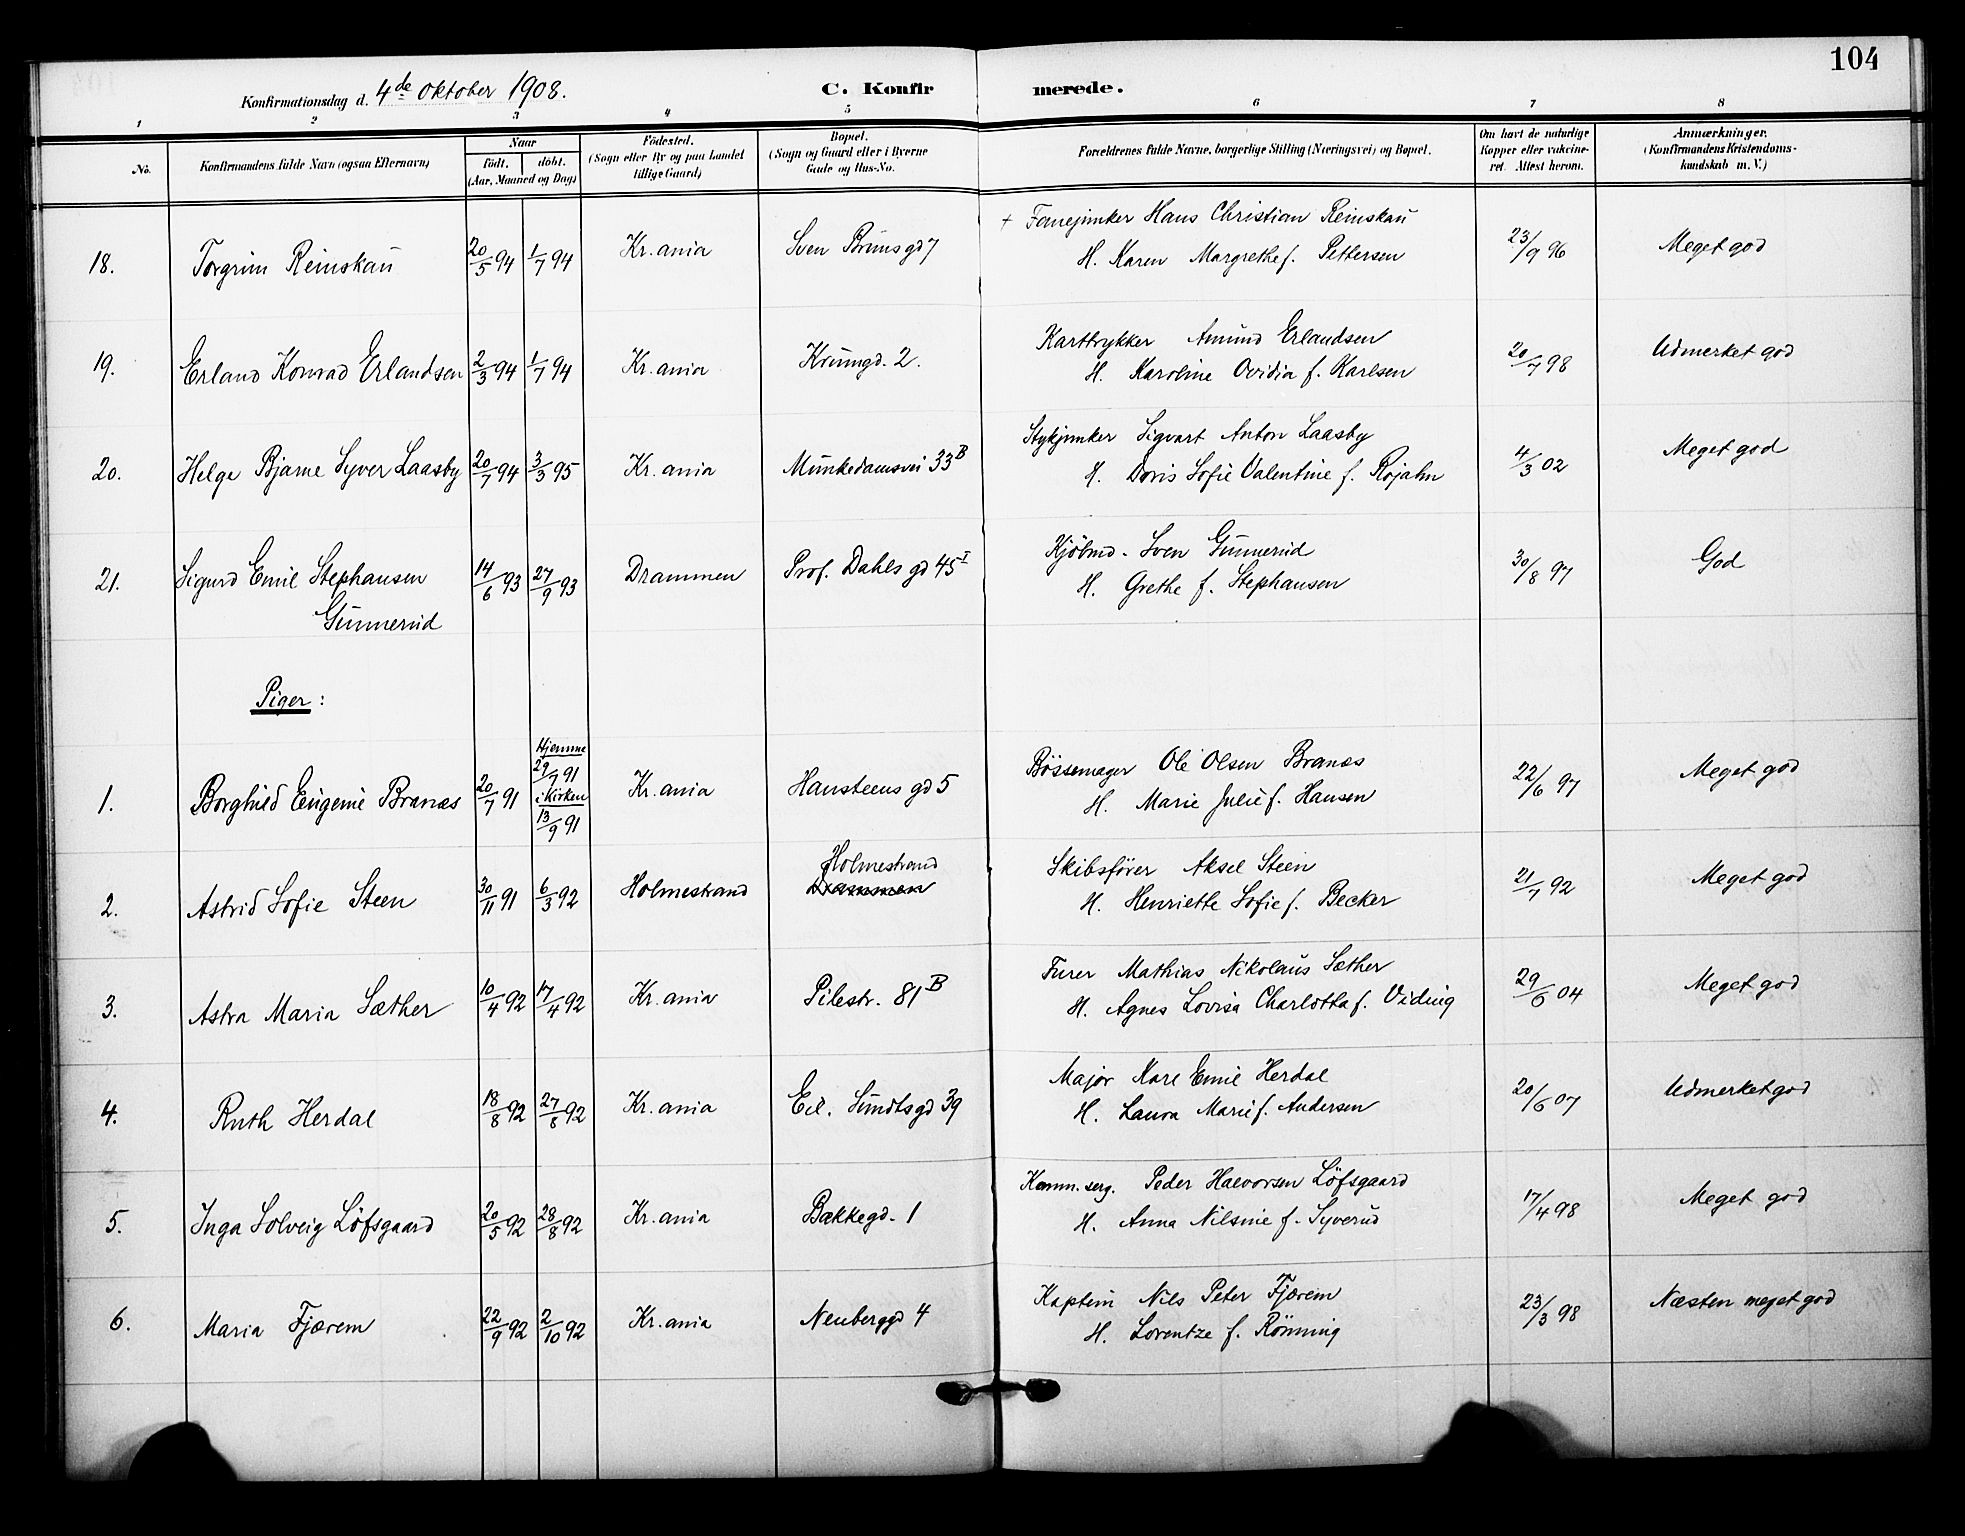 104
Konfirmationsdag d. 4de oktober 1908. C. Konfirmerede.
1 2 3 4 5 6 7 8
No. Konfirmandens fulde Navn (ogsaa Efternavn) Naar födt. döbt. (Aar, Maaned og Dag) Födested. (Sogn eller By og paa Landet tillige Gaard) Bopæl. (Sogn og Gaard eller i Byerne Gade og Hus-No. Forældrenes fulde Navne, borgerlige Stilling (Næringsvei) og Bopæl. Om havt de naturlige Kopper eller vakcineret. Attest herom. Anmærkninger. (Konfirmandens Kristendomskundskab m. V.)
18. Torgrim Reinskau 20/5 94 1/7 94 Kr.ania Sven Brunsgd 7 + Fanejunker Hans Christian Reinskau 23/9 96 Meget god
H. Karen Margrethe f. Pettersen
19. Erland Konrad Erlandsen 2/3 94 1/7 94 Kr.ania Krumgd. 2. Karttrykker Amund Erlandsen 20/7 98 Udmerket god
H. Karoline Ovidia f. Karlsen
20. Helge Bjarne Syver Laasby 20/7 94 3/3 95 Kr.ania Munkedamsvei 33 B Stykjunker Sigvart Anton Laasby 4/3 02 Meget god
H. Doris Sofie Valentine f. Rojahn
21. Sigurd Emil Stephansen 14/6 93 27/9 93 Drammen Prof. Dahls gd 45 I Kjöbmd. Sven Gunnerud 30/8 97 God
Gunnerud H. Grethe f. Stephansen
Piger:
1. Borghild Eugenie Branæs 20/7 91 Hjemme 29/7 91 i Kirken 13/9 91 Kr.ania Hansteens gd 5 Bössemager Ole Olsen Branæs 22/6 97 Meget god
H. Marie Julie f. Hansen
2. Astrid Sofie Steen 30/11 91 6/3 92 Holmestrand Holmestrand Drammen Skibsförer Aksel Steen 21/7 92 Meget god
H. Henriette Sofie f. Becker
3. Astra Maria Sæther 10/4 92 17/4 92 Kr.ania Pilestr. 81 B Furer Mathias Nikolaus Sæther 29/6 04 Meget god
H. Agnes Lovisa Charlotta f. Viding
4. Ruth Herdal 18/8 92 27/8 92 Kr.ania Eil. Sundts gd 39 Major Karl Emil Herdal 20/6 07 Udmerket god
H. Laura Marie f. Andersen
5. Inga Solveig Löfsgaard 20/5 92 28/8 92 Kr.ania Bakkegd. 1 Komm. serg. Peder Halvorsen Löfsgaard 17/4 98 Meget god
H. Anna Nilsine f. Syverud
6. Maria Fjærem 22/9 92 2/10 92 Kr.ania Neuberggd 4 Kaptein Nils Peter Fjærem 23/3 98 Næsten meget god
H. Lorentze f. Rönning